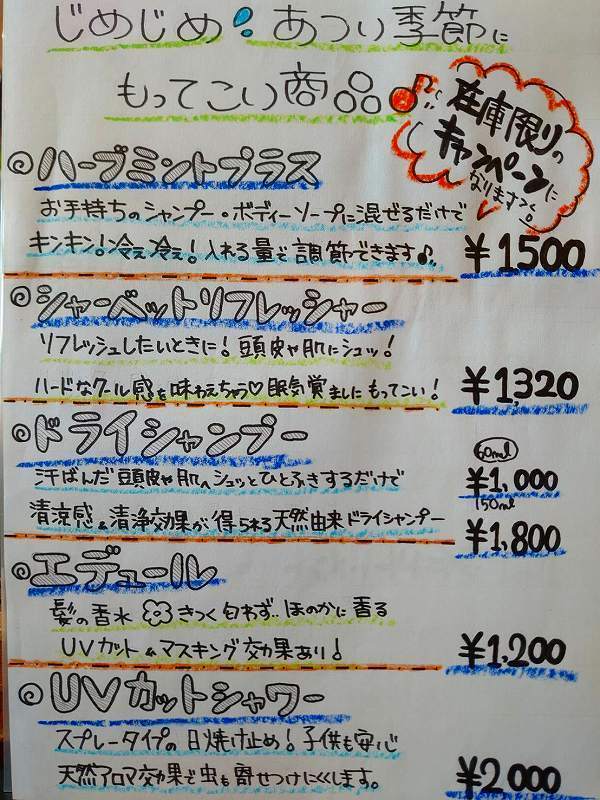 じめじめ あつい季節に
もってこい商品
在庫限りの
キャンペーンに
なります
◎ハーブミントプラス
お手持ちのシャンプー・ボディーソープに混ぜるだけで
キンキン!冷え冷え!入れる量で調節できます♪
¥1500
◎シャーベットリフレッシャー
リフレッシュしたいときに!頭皮や肌にシュッ!
ハードなクール感を味わえちゃう♡眠気覚ましにもってこい!
¥1,320
◎ドライシャンプー
汗ばんだ頭皮や肌へシュッとひとふきするだけで
60ml
¥1,000
清涼感&清浄効果が得られる天然由来ドライシャンプー
150ml
¥1,800
◎エデュール
髪の香水 きつく匂わず、ほのかに香る
UVカット&マスキング効果あり!
¥1,200
◎UVカットシャワー
スプレータイプの日焼け止め!子供も安心
天然アロマ効果で虫も寄せつけにくくします。
¥2,000